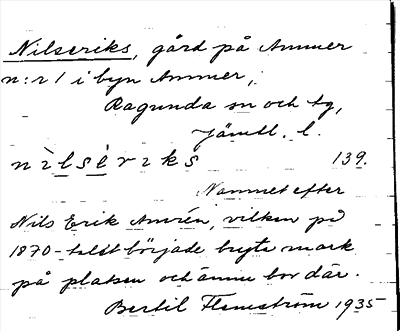 Nilseriks, gård på Ammer
n:r 1 i byn Ammer,
Ragunda sn och tg,
Jämtl. l.
nìlsèriks 139.
Namnet efter
Nils Erik Amrén, vilken på
1870-talet började bryta mark
på platsen och ännu bor där.
Bertil Flemström 1935